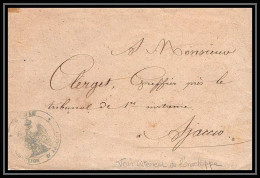 A Monsieur
Clerget, Greffier près le
tribunal de 1re instance
à Ajaccio